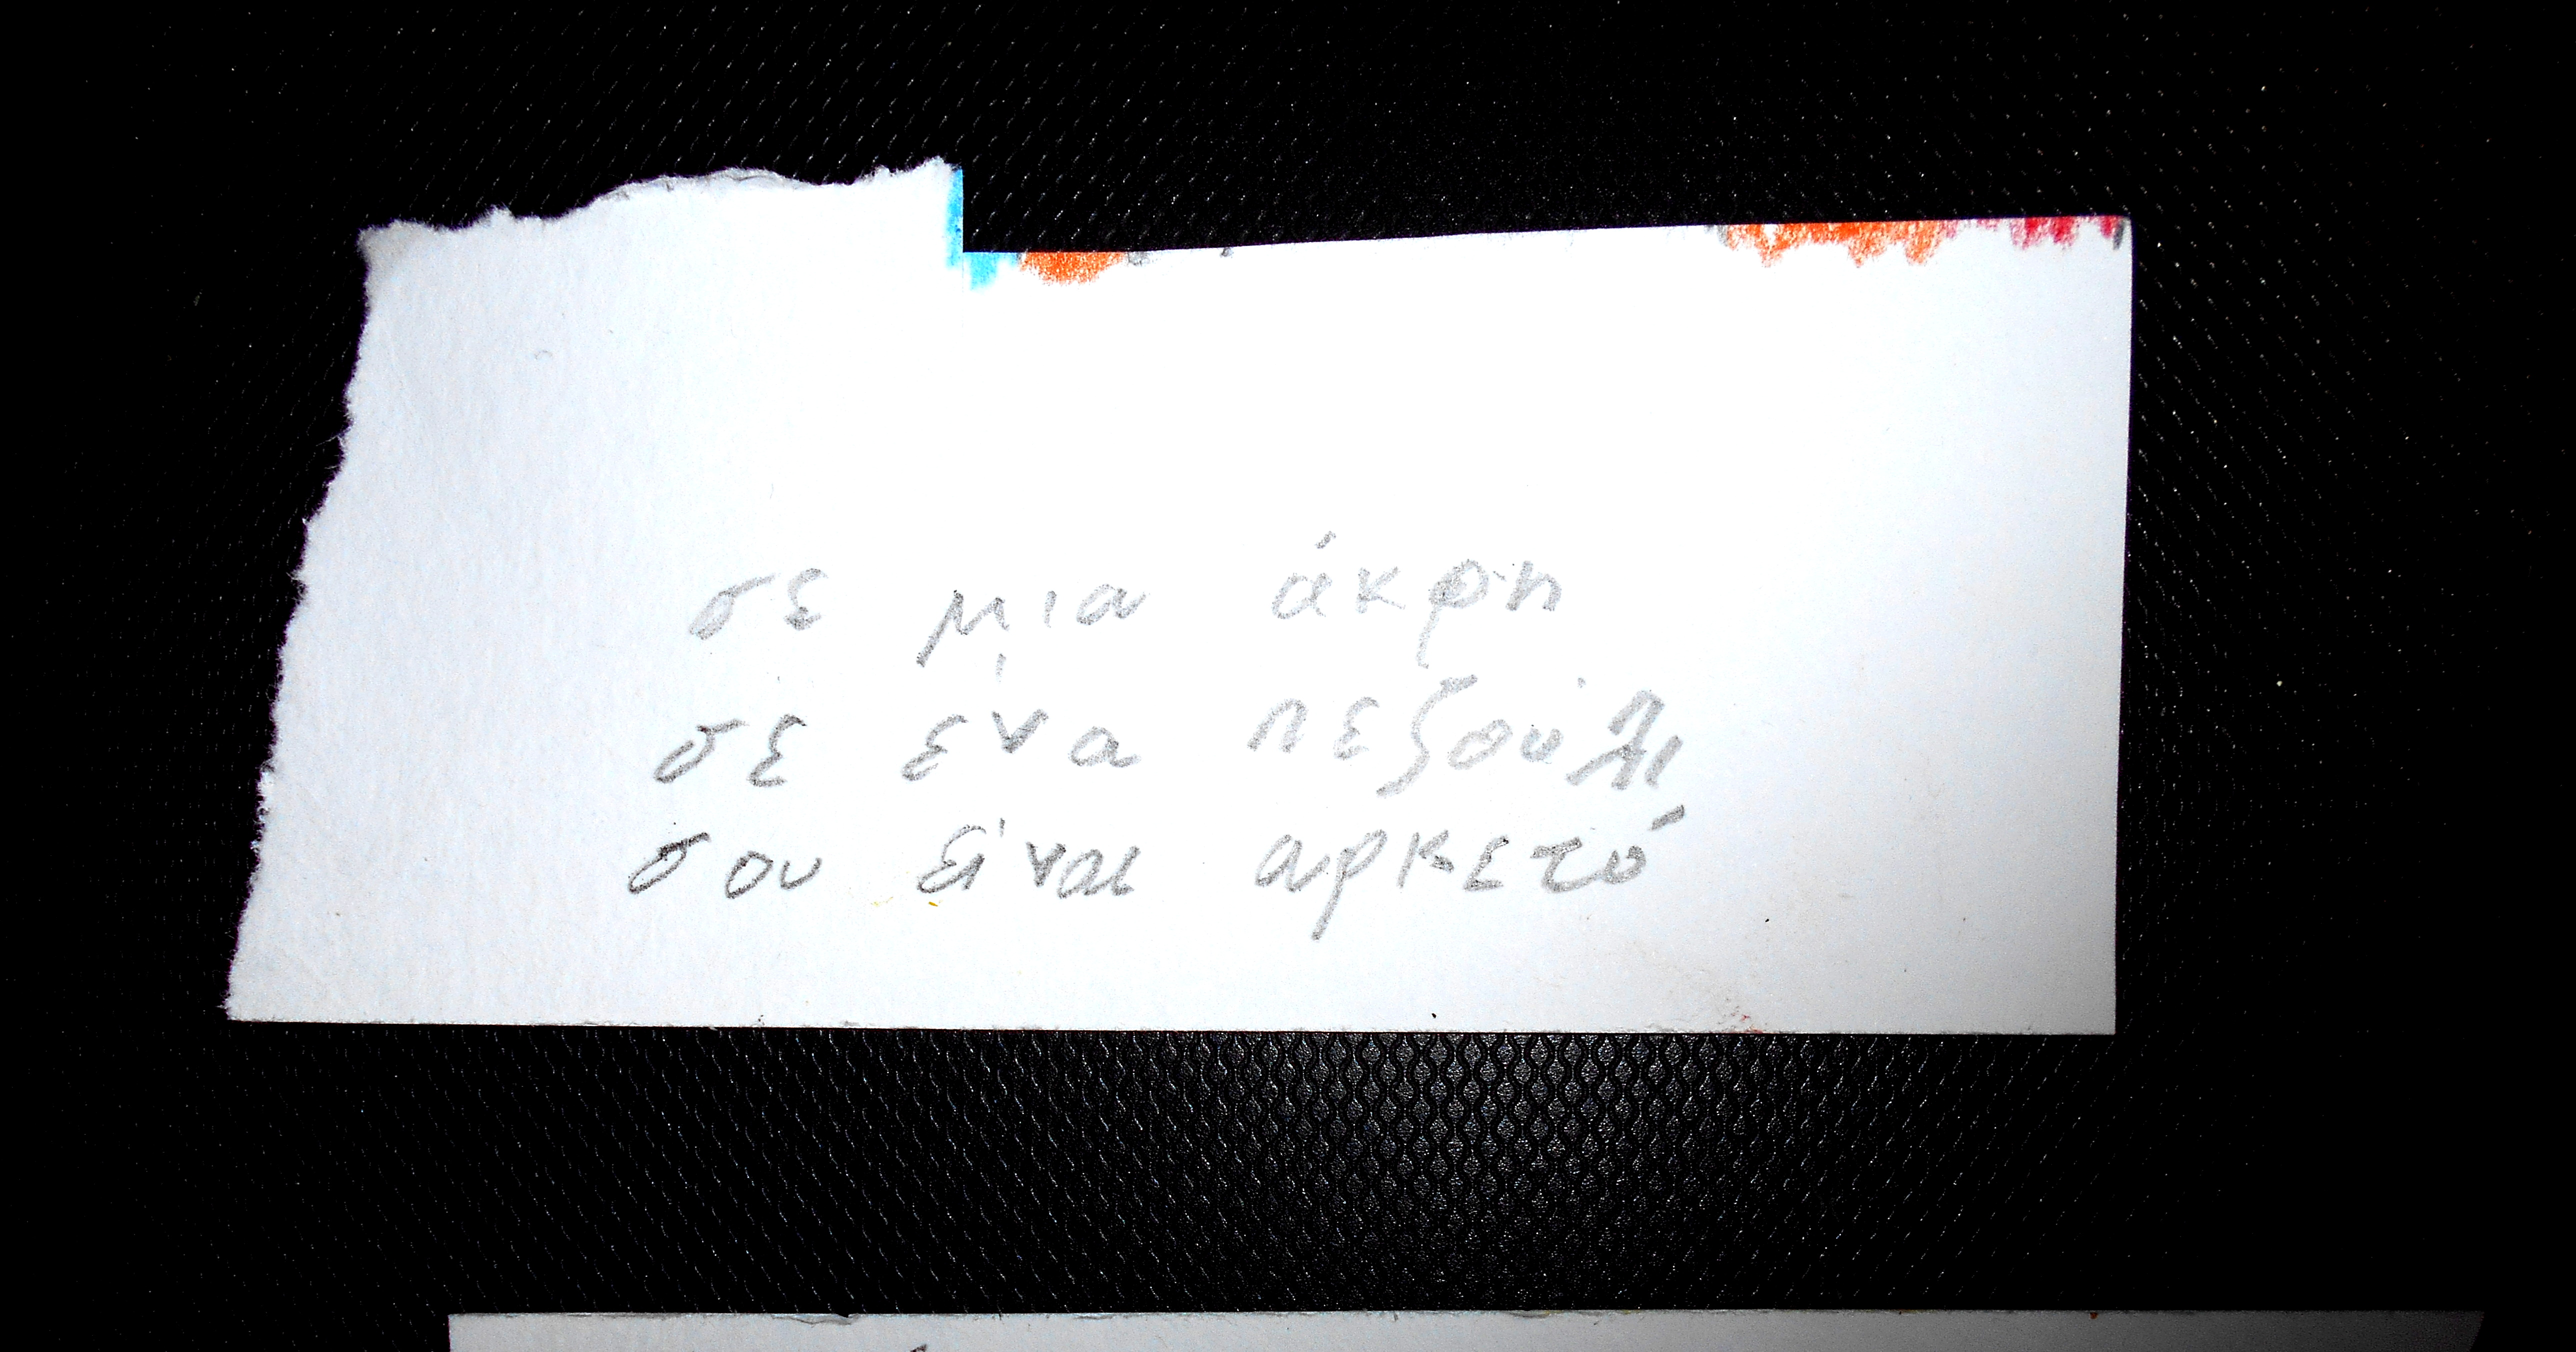 σε μια άκρη
σε ένα πεζούλι
σου είναι αρκετό